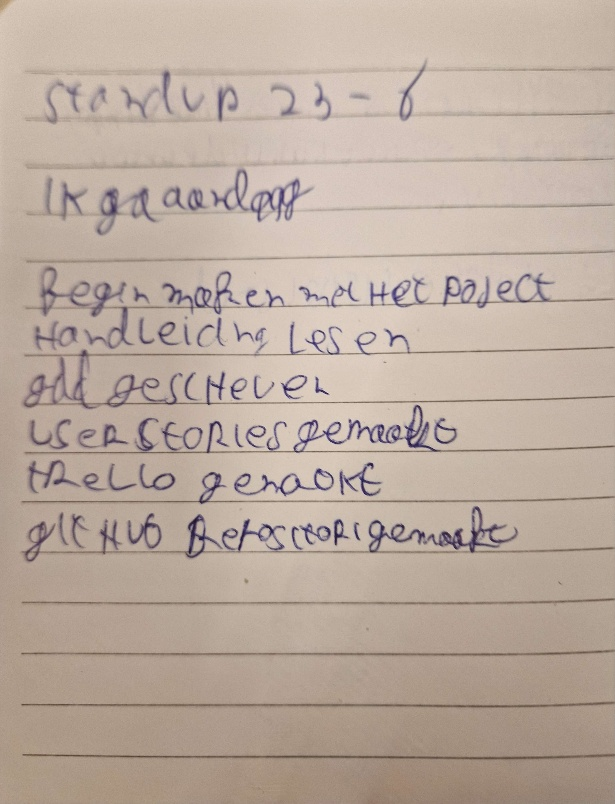 Standup 23-6
Ik ga
Begin maken met Het Poject
Handleidng Lesen
gdd gescHeven
USER StoRies gemaakt
tRello gemaakt
gitHub Repositori gemaakt